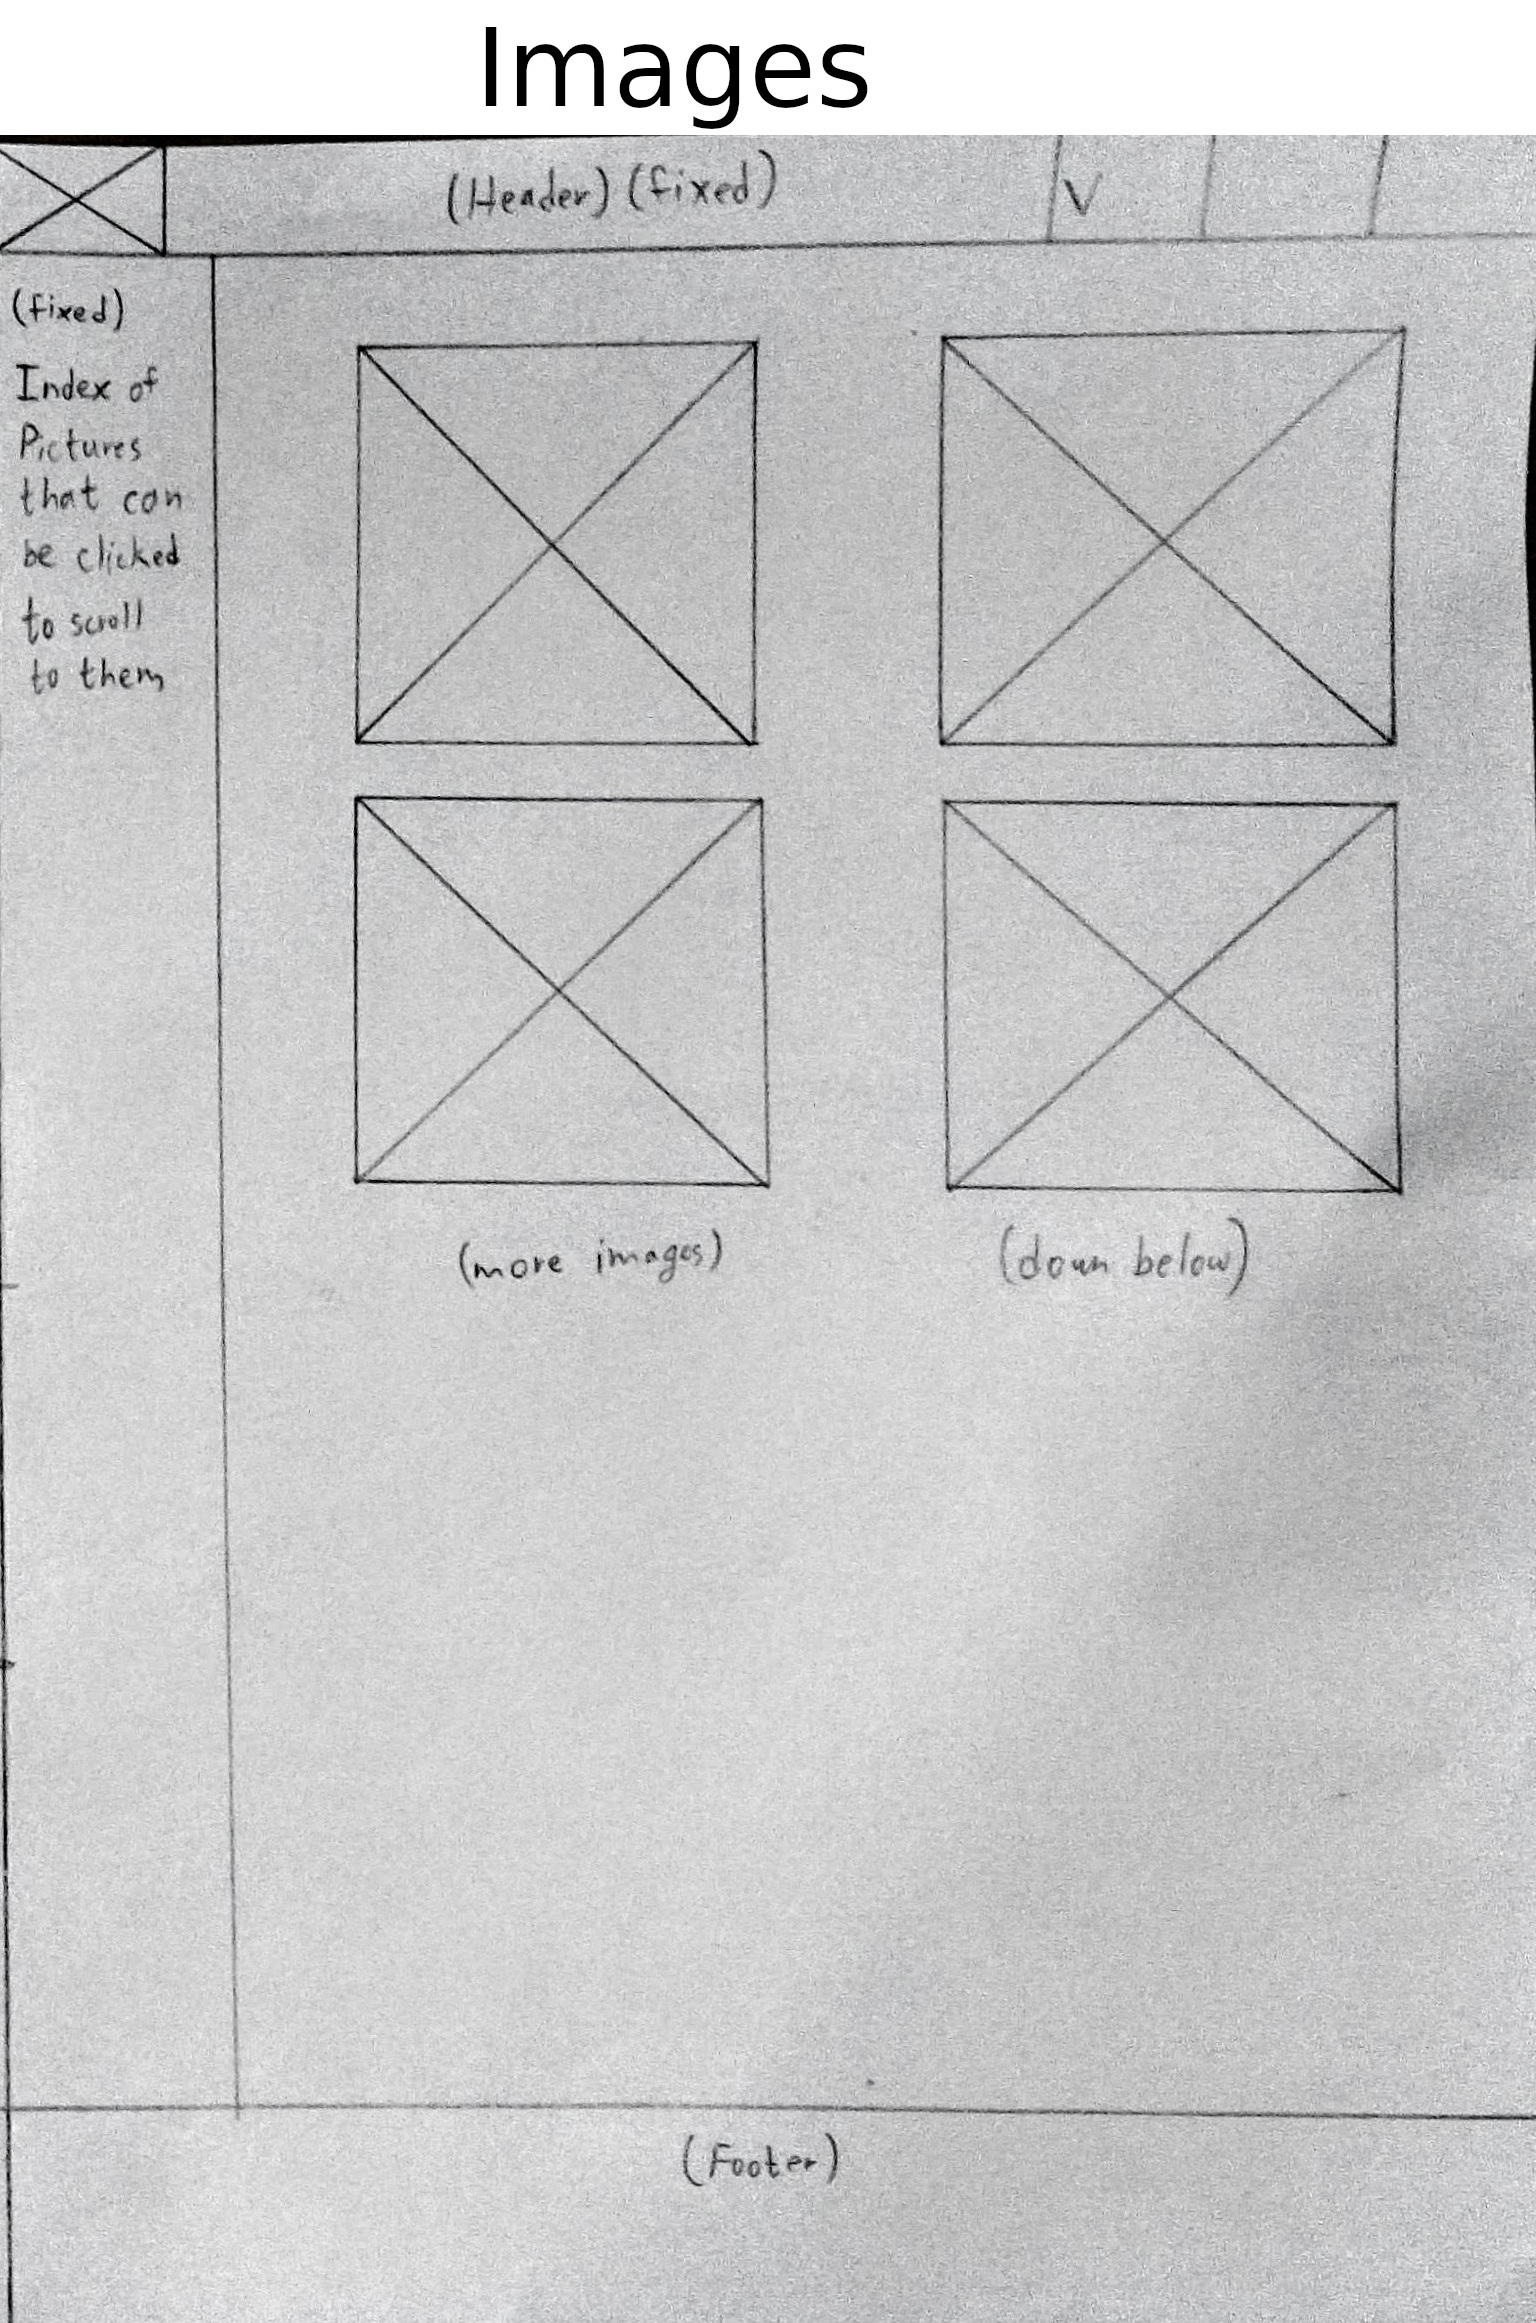 Images
(Header) (fixed)
V
(fixed)
Index of
Pictures
that can
be clicked
to scroll
to them
(more images)
(down below)
(Footer)